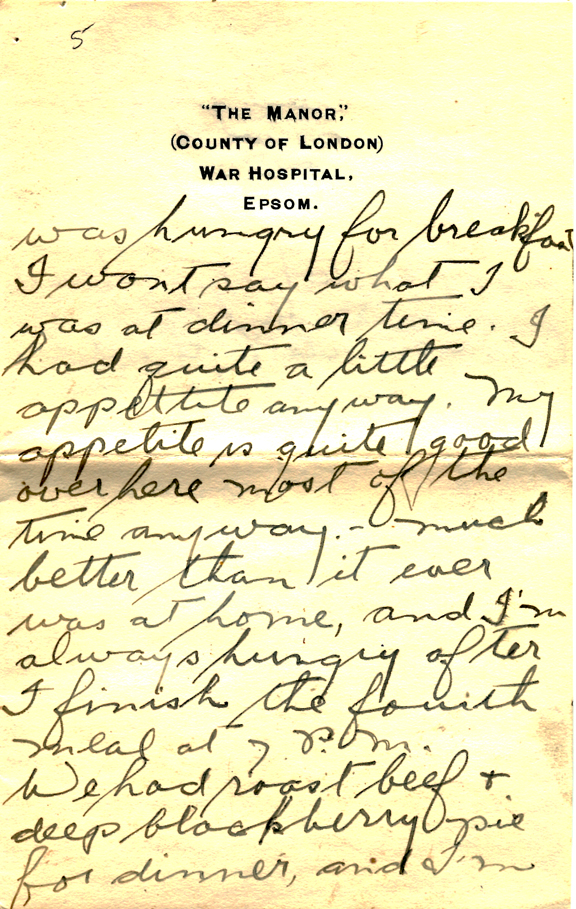 5
"THE MANOR,"
(COUNTY OF LONDON)
WAR HOSPITAL,
EPSOM.
was hungry for breakfast
I wont say what I
was at dinner time. I
had quite a little
appettite anyway. My
appetite is quite good
over here most of the
time anyway. - much
better than it ever
was at home, and I'm
always hungry after
I finish the fourth
meal at 7 P.M.
We had roast beef +
deep blackberry pie
for dinner, and I'm